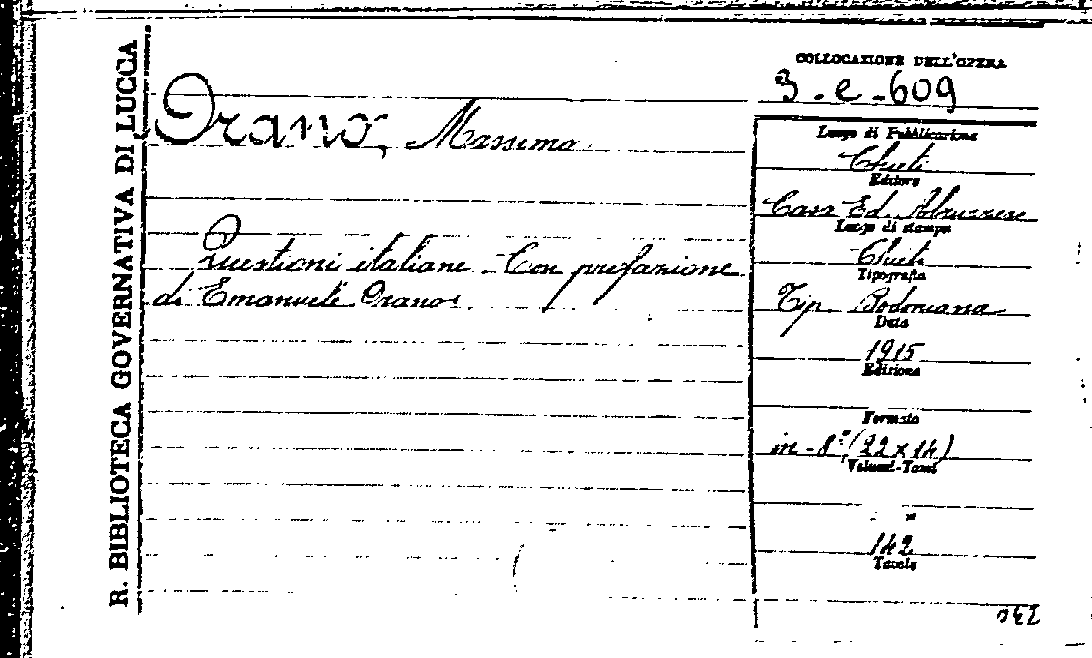 R. BIBLIOTECA GOVERNATIVA DI LUCCA
COLLOCAZIONE DELL'OPERA
3-e-609
Orano, Massimo
Questioni italiane. Con prefazione
di Emanuele Orano.
Luogo di Pubblicazione
Chieti
Editore
Casa Ed. Abruzzese
Luogo di stampa
Chieti
Tipografia
Tip. Bodoniana
Data
1915
Edizione
Formato
in-8° (22x14)
Volumi-Tomi
142
Tavole